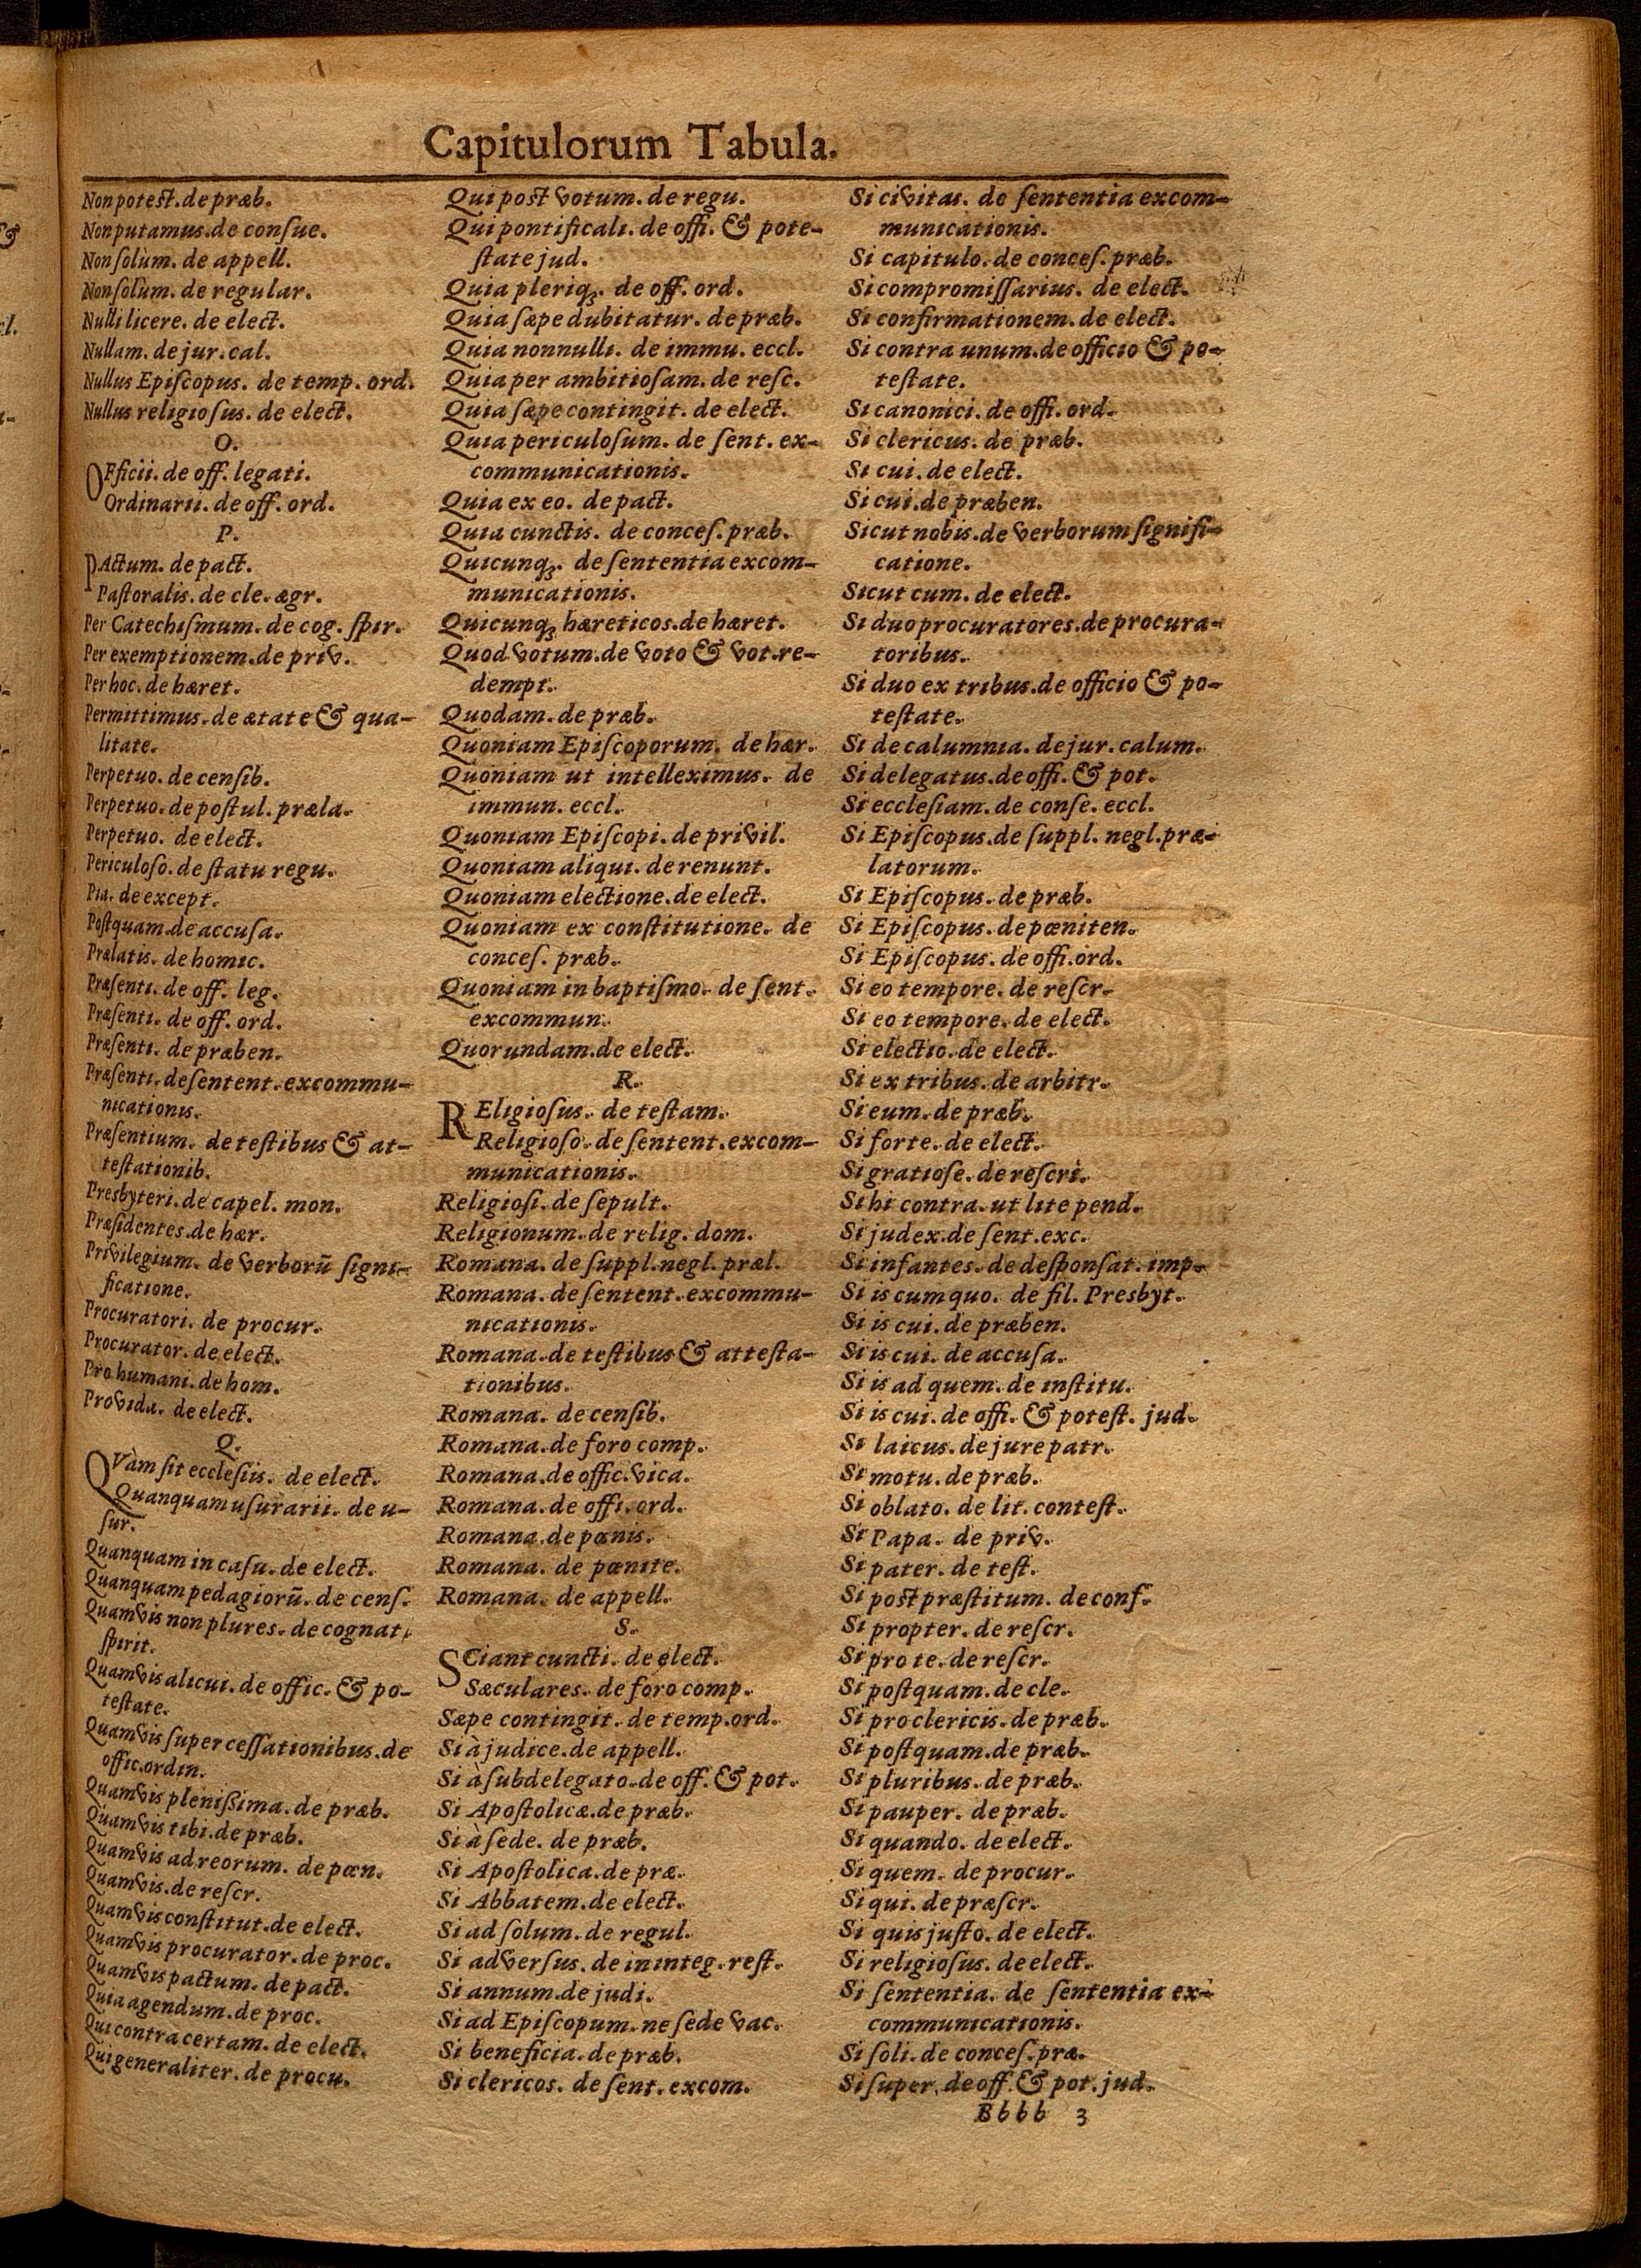 Capitulorum Tabula.
Non potest. de præb.
Non putamus. de consue.
Non solùm. de appell.
Non solùm. de regular.
Nulli licere. de elect.
Nullam. de jur. cal.
Nullus Episcopus. de temp. ord.
Nullus religiosus. de elect.
O.
OFficii. de off. legati.
Ordinarii. de off. ord.
P.
PActum. de pact.
Pastoralis. de cle. ægr.
Per Catechismum. de cog. spir.
Per exemptionem. de priv.
Per hoc. de hæret.
Permittimus. de ætate & qua-
litate.
Perpetuo. de censib.
Perpetuo. de postul. præla.
Perpetuo. de elect.
Periculoso. de statu regu.
Pia. de except.
Postquam. de accusa.
Prælatis. de homic.
Præsenti. de off. leg.
Præsenti. de off. ord.
Præsenti. de præben.
Præsenti. de sentent. excommu-
nicationis.
Præsentium. de testibus & at-
testationib.
Presbyteri. de capel. mon.
Præsidentes. de hær.
Privilegium. de verborū signi-
ficatione.
Procuratori. de procur.
Procurator. de elect.
Pro humani. de hom.
Provida. de elect.
Q.
QVàm sit ecclesiis. de elect.
Quanquam usurarii. de u-
sur.
Quanquam in casu. de elect.
Quanquam pedagiorū. de cens.
Quamvis non plures. de cognat.
spirit.
Quamvis alicui. de offic. & po-
testate.
Quamvis super cessationibus. de
offic. ordin.
Quamvis plenißima. de præb.
Quamvis tibi. de præb.
Quamvis ad reorum. de pœn.
Quamvis. de rescr.
Quamvis constitut. de elect.
Quamvis procurator. de proc.
Quamvis pactum. de pact.
Quia agendum. de proc.
Qui contra certam. de elect.
Qui generaliter. de procu.
Qui post votum. de regu.
Qui pontificali. de offi. & pote-
state jud.
Quia pleriqꝫ. de off. ord.
Quia sæpe dubitatur. de præb.
Quia nonnulli. de immu. eccl.
Quia per ambitiosam. de resc.
Quia sæpe contingit. de elect.
Quia periculosum. de sent. ex-
communicationis.
Quia ex eo. de pact.
Quia cunctis. de conces. præb.
Quicunqꝫ. de sententia excom-
municationis.
Quicunqꝫ hæreticos. de hæret.
Quod votum. de voto & vot. re-
dempt.
Quodam. de præb.
Quoniam Episcoporum. de hær.
Quoniam ut intelleximus. de
immun. eccl.
Quoniam Episcopi. de privil.
Quoniam aliqui. de renunt.
Quoniam electione. de elect.
Quoniam ex constitutione. de
conces. præb.
Quoniam in baptismo. de sent.
excommun.
Quorundam. de elect.
R.
REligiosus. de testam.
Religioso. de sentent. excom-
municationis.
Religiosi. de sepult.
Religionum. de relig. dom.
Romana. de suppl. negl. præl.
Romana. de sentent. excommu-
nicationis.
Romana. de testibus & attesta-
tionibus.
Romana. de censib.
Romana. de foro comp.
Romana. de offic. vica.
Romana. de offi. ord.
Romana. de pœnis.
Romana. de pœnite.
Romana. de appell.
S.
SCiant cuncti. de elect.
Sæculares. de foro comp.
Sæpe contingit. de temp. ord.
Si à judice. de appell.
Si à subdelegato. de off. & pot.
Si Apostolicæ. de præb.
Si à sede. de præb.
Si Apostolica. de præ.
Si Abbatem. de elect.
Si ad solum. de regul.
Si adversus. de in integ. rest.
Si annum. de judi.
Si ad Episcopum. ne sede vac.
Si beneficia. de præb.
Si clericos. de sent. excom.
Si civitas. de sententia excom-
municationis.
Si capitulo. de conces. præb.
Si compromissarius. de elect.
Si confirmationem. de elect.
Si contra unum. de officio & po-
testate.
Si canonici. de offi. ord.
Si clericus. de præb.
Si cui. de elect.
Si cui. de præben.
Sicut nobis. de verborum signifi-
catione.
Sicut cum. de elect.
Si duo procuratores. de procura-
toribus.
Si duo ex tribus. de officio & po-
testate.
Si de calumnia. de jur. calum.
Si delegatus. de offi. & pot.
Si ecclesiam. de conse. eccl.
Si Episcopus. de suppl. negl. præ-
latorum.
Si Episcopus. de præb.
Si Episcopus. de pœniten.
Si Episcopus. de offi. ord.
Si eo tempore. de rescr.
Si eo tempore. de elect.
Si electio. de elect.
Si ex tribus. de arbitr.
Si eum. de præb.
Si forte. de elect.
Si gratiose. de rescri.
Si hi contra. ut lite pend.
Si judex. de sent. exc.
Si infantes. de desponsat. imp.
Si is cum quo. de fil. Presbyt.
Si is cui. de præben.
Si is cui. de accusa.
Si is ad quem. de institu.
Si is cui. de offi. & potest. jud.
Si laicus. de jure patr.
Si motu. de præb.
Si oblato. de lit. contest.
Si Papa. de priv.
Si pater. de test.
Si post præstitum. de conf.
Si propter. de rescr.
Si pro te. de rescr.
Si postquam. de cle.
Si pro clericis. de præb.
Si postquam. de præb.
Si pluribus. de præb.
Si pauper. de præb.
Si quando. de elect.
Si quem. de procur.
Si qui. de præscr.
Si quis justo. de elect.
Si religiosus. de elect.
Si sententia. de sententia ex-
communicationis.
Si soli. de conces. præ.
Si super. de off. & pot. jud.
Bbbb 3